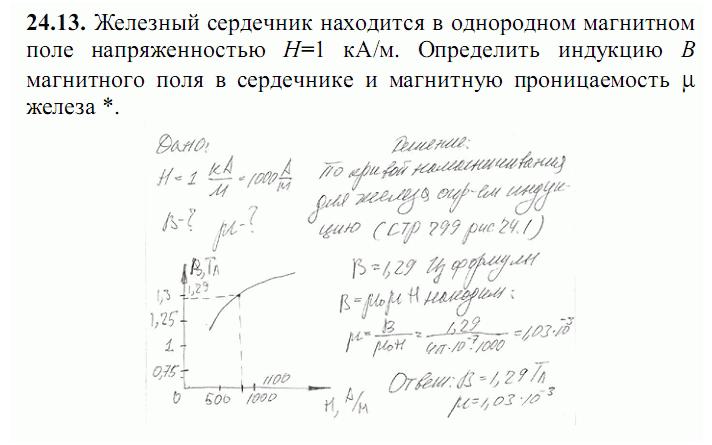 24.13. Железный сердечник находится в однородном магнитном
поле напряженностью H=1 кА/м. Определить индукцию B
магнитного поля в сердечнике и магнитную проницаемость μ
железа *.
Дано:
H = 1 кА/м = 1000 А/м
B-? μ-?
Решение:
По кривой намагничивания
для железа опр-ем индук-
цию (стр 299 рис 24.1)
B = 1,29 Из формулы
B = μ₀μH находим:
μ = B/μ₀H = 1,29/4π·10⁻⁷·1000 = 1,03·10⁻³
Ответ: B = 1,29 Тл
μ = 1,03·10⁻³
B, Тл
1,29
1,3
1,25
1
0,75
1100
0 500 1000 H, А/м